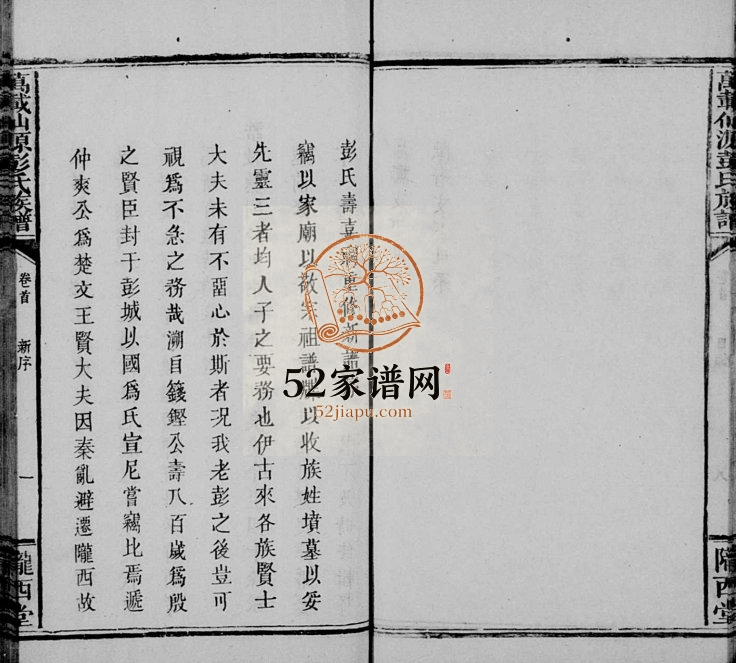 萬載仙源彭氏族譜
隴西堂
彭氏壽喜重修新譜
竊以家廟以敬宗祖譜牒以收族姓墳墓以妥
先靈三者均人子之要務也伊古來各族賢士
大夫未有不畱心於斯者况我老彭之後豈可
視爲不急之務哉溯自籛鏗公壽八百歲爲殷
之賢臣封于彭城以國爲氏宣尼嘗竊比焉遞
仲爽公爲楚文王賢大夫因秦亂避遷隴西故
萬載仙源彭氏族譜
卷首
新序
一
隴西堂
52家谱网
52jiapu.com